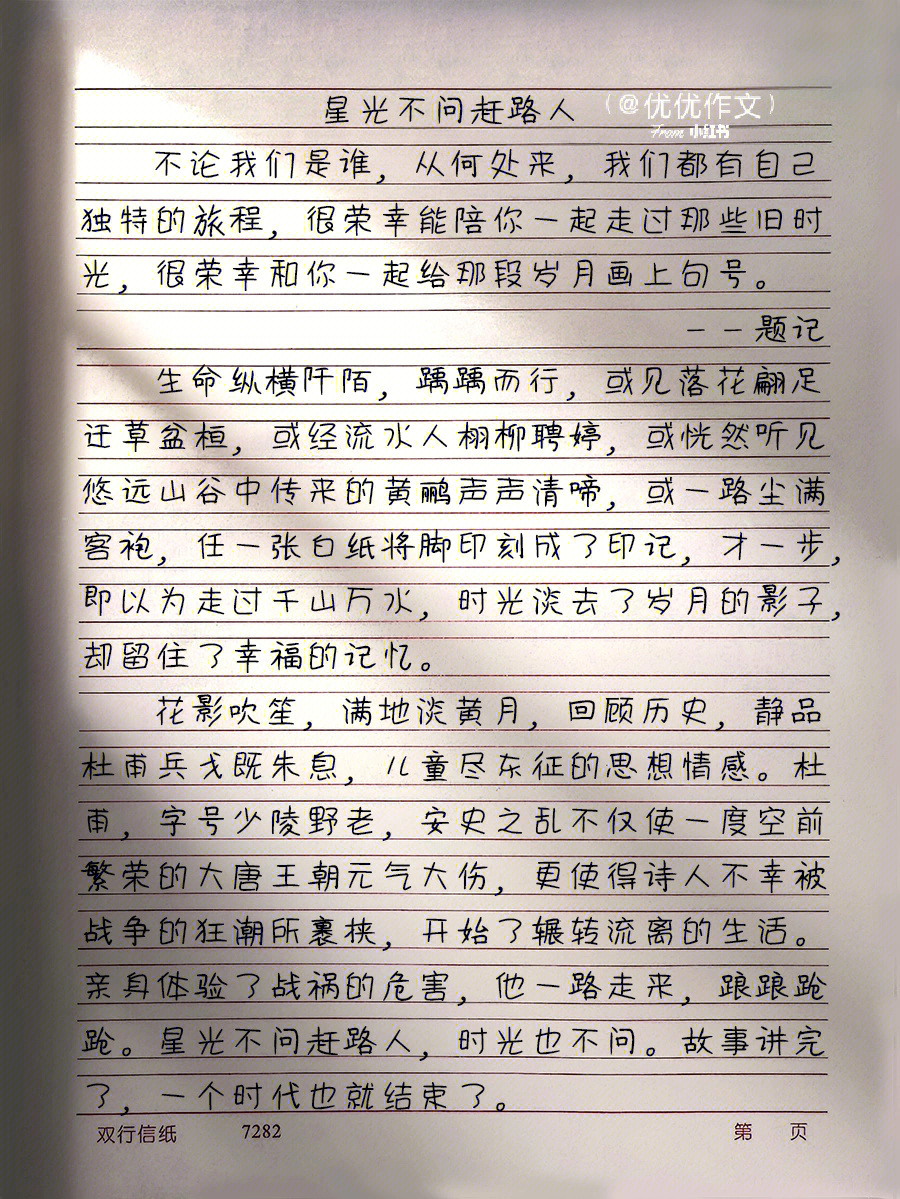 星光不问赶路人 (@优优作文)
From 小红书
不论我们是谁，从何处来，我们都有自己
独特的旅程，很荣幸能陪你一起走过那些旧时
光，很荣幸和你一起给那段岁月画上句号。
——题记
生命纵横阡陌，踽踽而行，或见落花翩足
迂草盆桓，或经流水人栩柳聘婷，或恍然听见
悠远山谷中传来的黄鹂声声清啼，或一路尘满
客袍，任一张白纸将脚印刻成了印记，才一步，
即以为走过千山万水，时光淡去了岁月的影子，
却留住了幸福的记忆。
花影吹笙，满地淡黄月，回顾历史，静品
杜甫兵戈既未息，儿童尽东征的思想情感。杜
甫，字号少陵野老，安史之乱不仅使一度空前
繁荣的大唐王朝元气大伤，更使得诗人不幸被
战争的狂潮所裹挟，开始了辗转流离的生活。
亲身体验了战祸的危害，他一路走来，踉踉跄
跄。星光不问赶路人，时光也不问。故事讲完
了，一个时代也就结束了。
双行信纸 7282 第 页